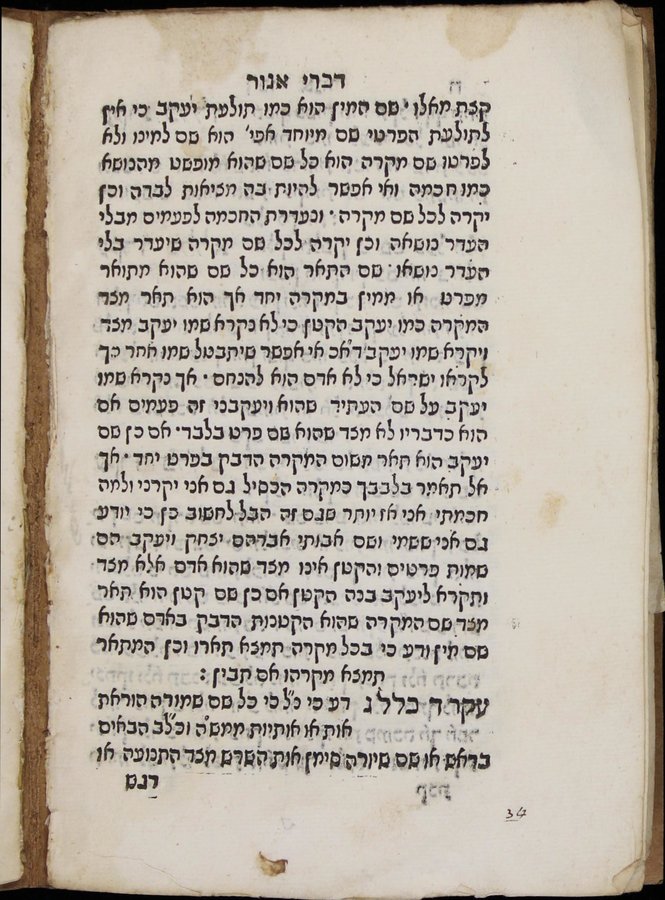 דברי אגור
קצת מאלו ׳ שם המין הוא כמו תולעת יעקב כי אין
לתולעת הפרטי שם מיוחד אפי׳ הוא שם למינו ולא
לפרטו שם מקרה הוא כל שם שהוא מופשט מהנושא
כמו חכמה ואי אפשר להיות בה מציאות לבדה וכן
יקרה לכל שם מקרה ׳ ונעדרת החכמה לפעמים מבלי
העדר נושאה וכן יקרה לכל שם מקרה שיעדר בלי
העדר נושאו ׳ שם התאר הוא כל שם שהוא מתואר
מפרט או ממין במקרה יחד אך הוא תאר מצד
המקרה כמו יעקב הקטן כי לא נקרא שמו יעקב מצד
ויקרא שמו יעקב דא״כ אי אפשר שיתבטל שמו אחר כך
לקראו ישראל כי לא אדם הוא להנחם ׳ אך נקרא שמו
יעקב על שם העתיד שהוא ויעקבני זה פעמים אם
הוא כדבריו לא מצד שהוא שם פרט בלבד ׳ אם כן שם
יעקב הוא תאר משום המקרה הדבק בפרט יחד ׳ אך
אל תאמר בלבבך כמקרה הכסיל גם אני יקרני ולמה
חכמתי אני אז יותר שגם זה הבל לחשוב כן כי יודע
גם אני ששמי ושם אבותי אברהם יצחק ויעקב הם
שמות פרטים והקטן אינו מצד שהוא אדם אלא מצד
ותקרא ליעקב בנה הקטן אם כן שם קטן הוא תאר
מצד שם המקרה שהוא הקטנות הדבק באדם שהוא
שם מין ודע כי בכל מקרה תמצא תארו וכן המתאר
תמצא מקרהו אם תבין :
עקר ד כלל ג דע כי כ״ל כי כל שם שמורה הוראת
אות או אותיות ממש״ה וכ״לב הבאים
בראש או שם שיורה סימן אות השרש מצד התנועה או
דגש
34